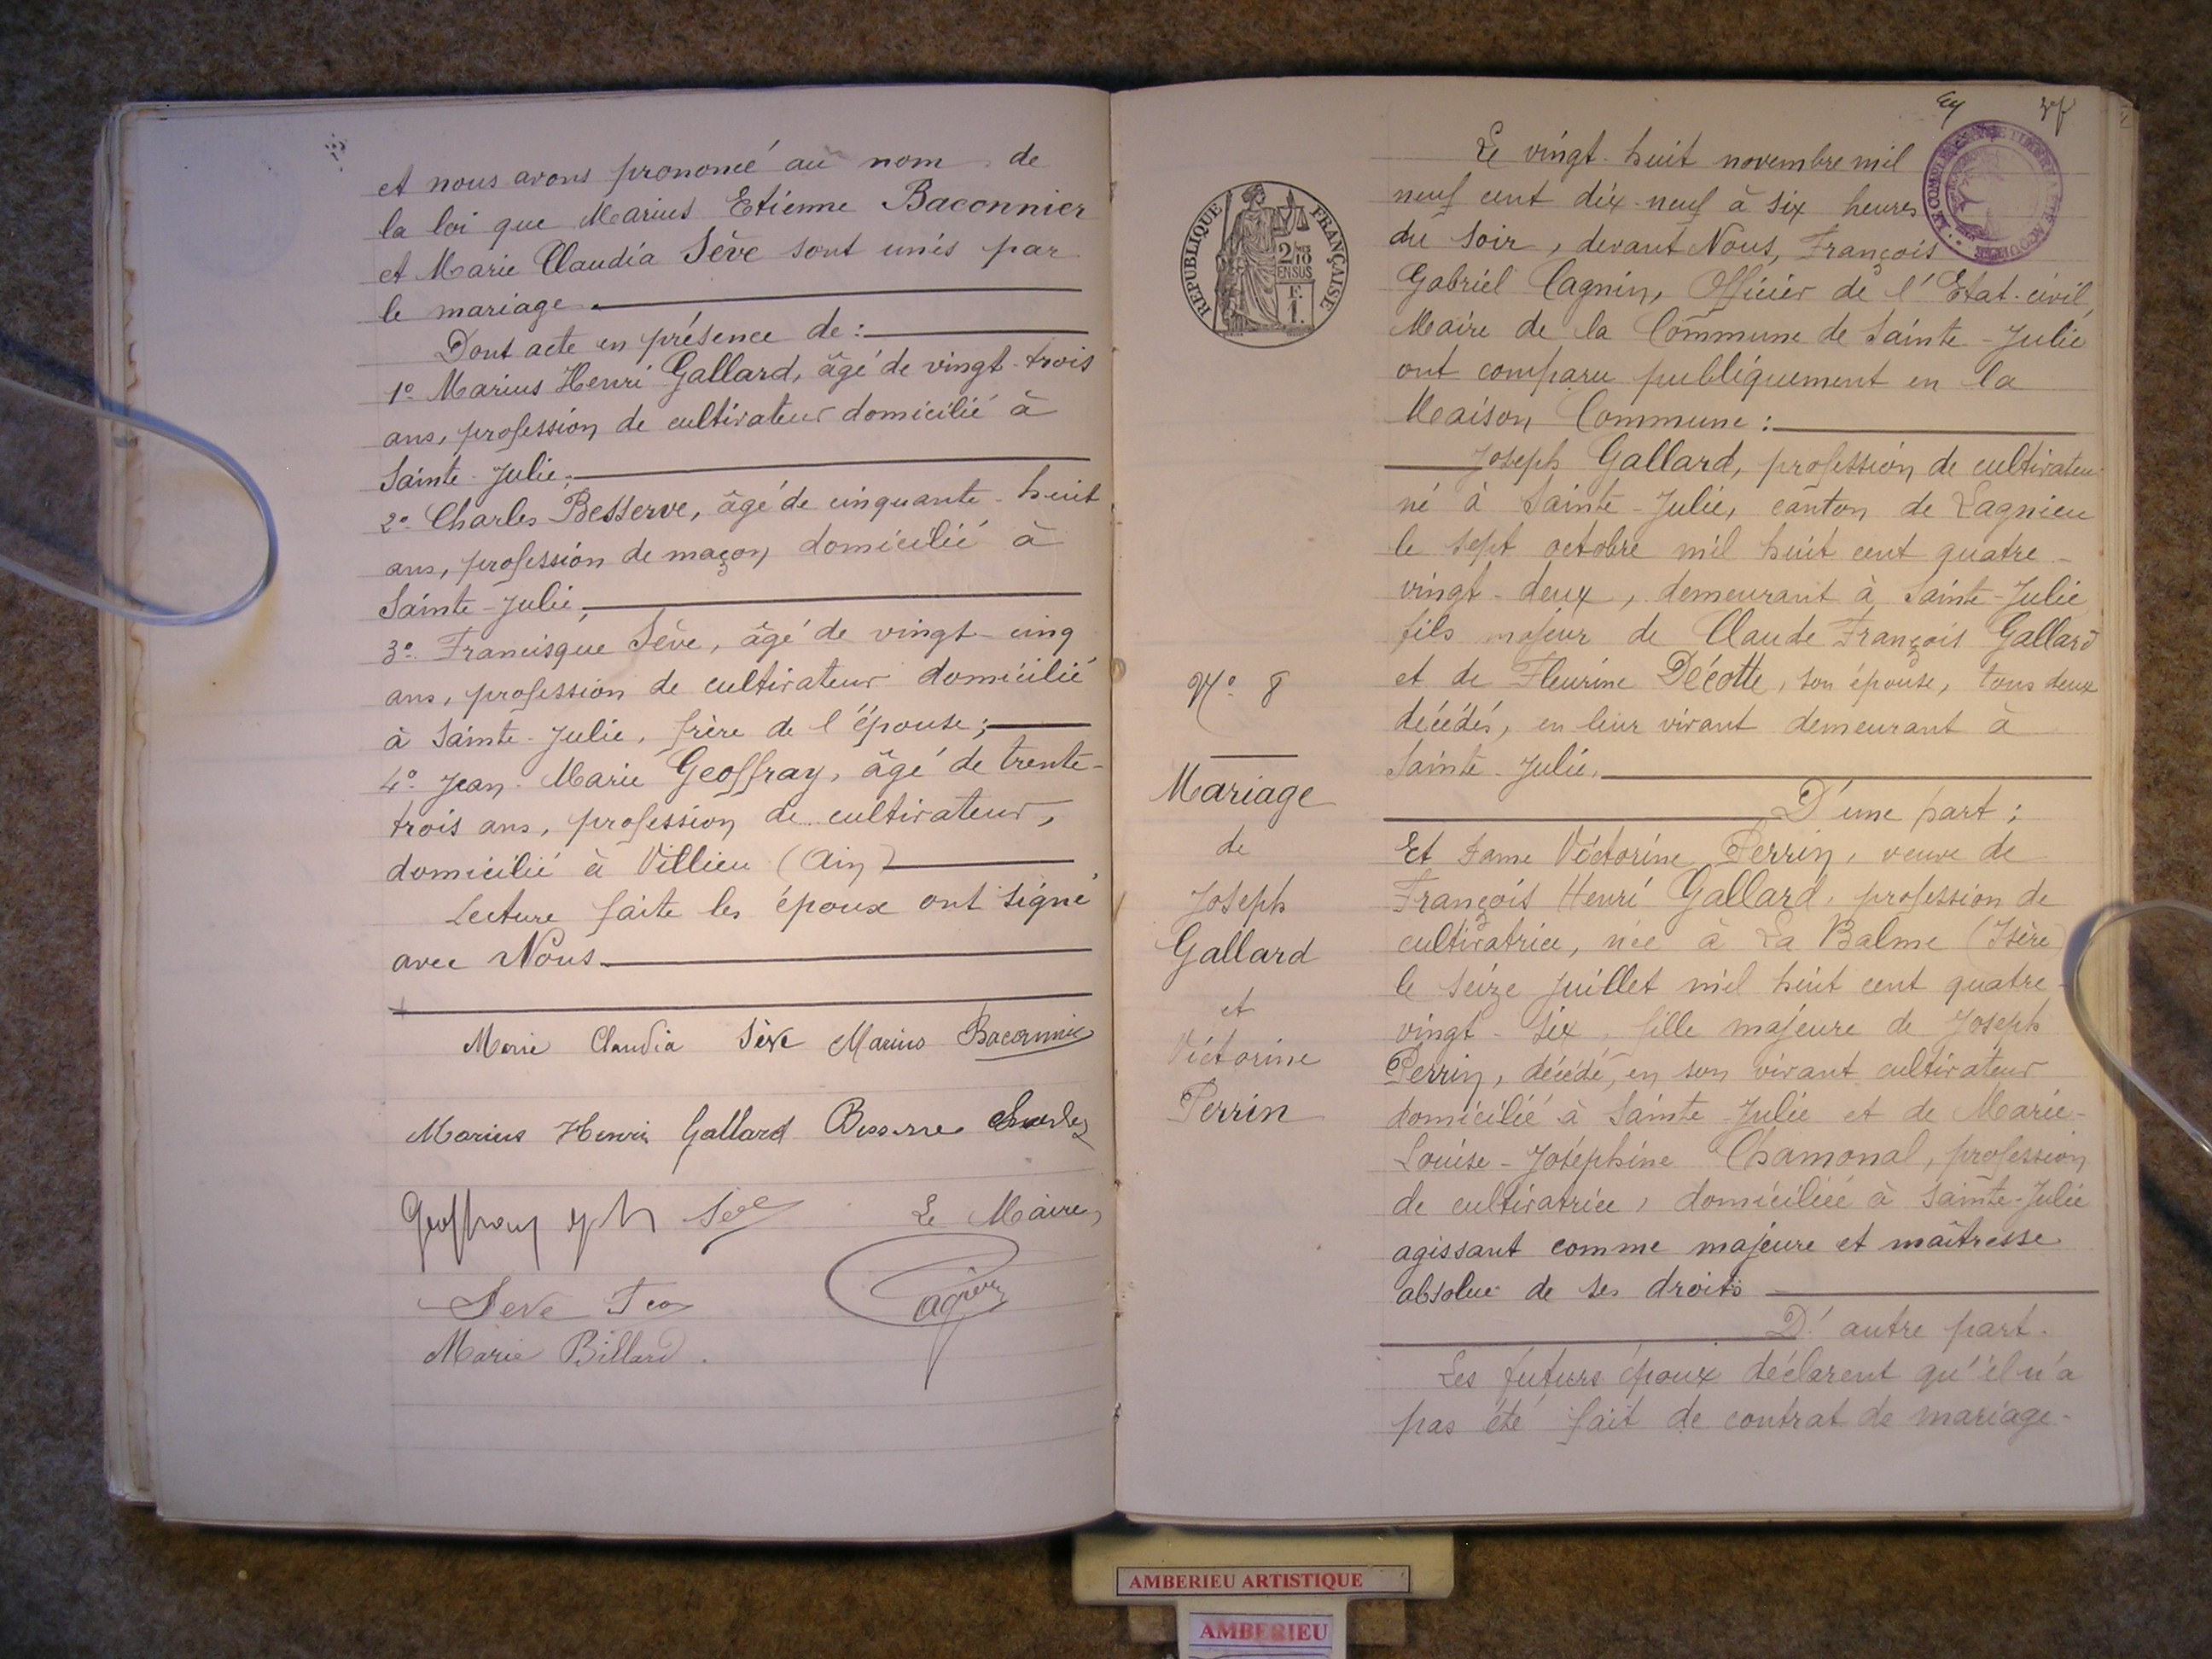 et nous avons prononcé au nom de
la loi que Marius Etienne Baconnier
et Marie Claudia Sève sont unis par
le mariage.
Dont acte en présence de :
1º Marius Henri Gallard, âgé de vingt-trois
ans, profession de cultivateur domicilié à
Sainte-Julie ;
2º Charles Besserve, âgé de cinquante-huit
ans, profession de maçon domicilié à
Sainte-Julie,
3º Francisque Sève, âgé de vingt-cinq
ans, profession de cultivateur domicilié
à Sainte-Julie, frère de l'épouse ;
4º Jean-Marie Geoffray, âgé de trente-
trois ans, profession de cultivateur,
domicilié à Villieu (Ain)
Lecture faite les époux ont signé
avec Nous
Marie Claudia Sève Marius Baconnier
Marius Henri Gallard Besserve Charles
Geoffray Sève Le Maire,
Cagnin
Seve
Marie Billard.
Le vingt-huit novembre mil
neuf cent dix-neuf à six heures
du soir, devant Nous, François
Gabriel Cagnin, Officier de l'Etat-civil,
Maire de la Commune de Sainte-Julie
ont comparu publiquement en la
Maison Commune :
Joseph Gallard, profession de cultivateur
né à Sainte-Julie, canton de Lagnieu
le sept octobre mil huit cent quatre-
vingt-deux, demeurant à Sainte-Julie
fils majeur de Claude François Gallard
et de Fleurine Décotte, son épouse, tous deux
décédés, en leur vivant demeurant à
Sainte-Julie.
D'une part ;
Et Dame Victorine Perrin, veuve de
François Henri Gallard, profession de
cultivatrice, née à La Balme (Isère)
le seize juillet mil huit cent quatre-
vingt-six, fille majeure de Joseph
Perrin, décédé, en son vivant cultivateur
domicilié à Sainte-Julie et de Marie-
Louise-Joséphine Chamonal, profession
de cultivatrice, domiciliée à Sainte-Julie
agissant comme majeure et maîtresse
absolue de ses droits
D'autre part.
Les futurs époux déclarent qu'il n'a
pas été fait de contrat de mariage.
REPUBLIQUE FRANÇAISE
2/10
EN SUS
F.
1.
Nº 8
Mariage
de
Joseph
Gallard
et
Victorine
Perrin
AMBERIEU ARTISTIQUE
AMBERIEU